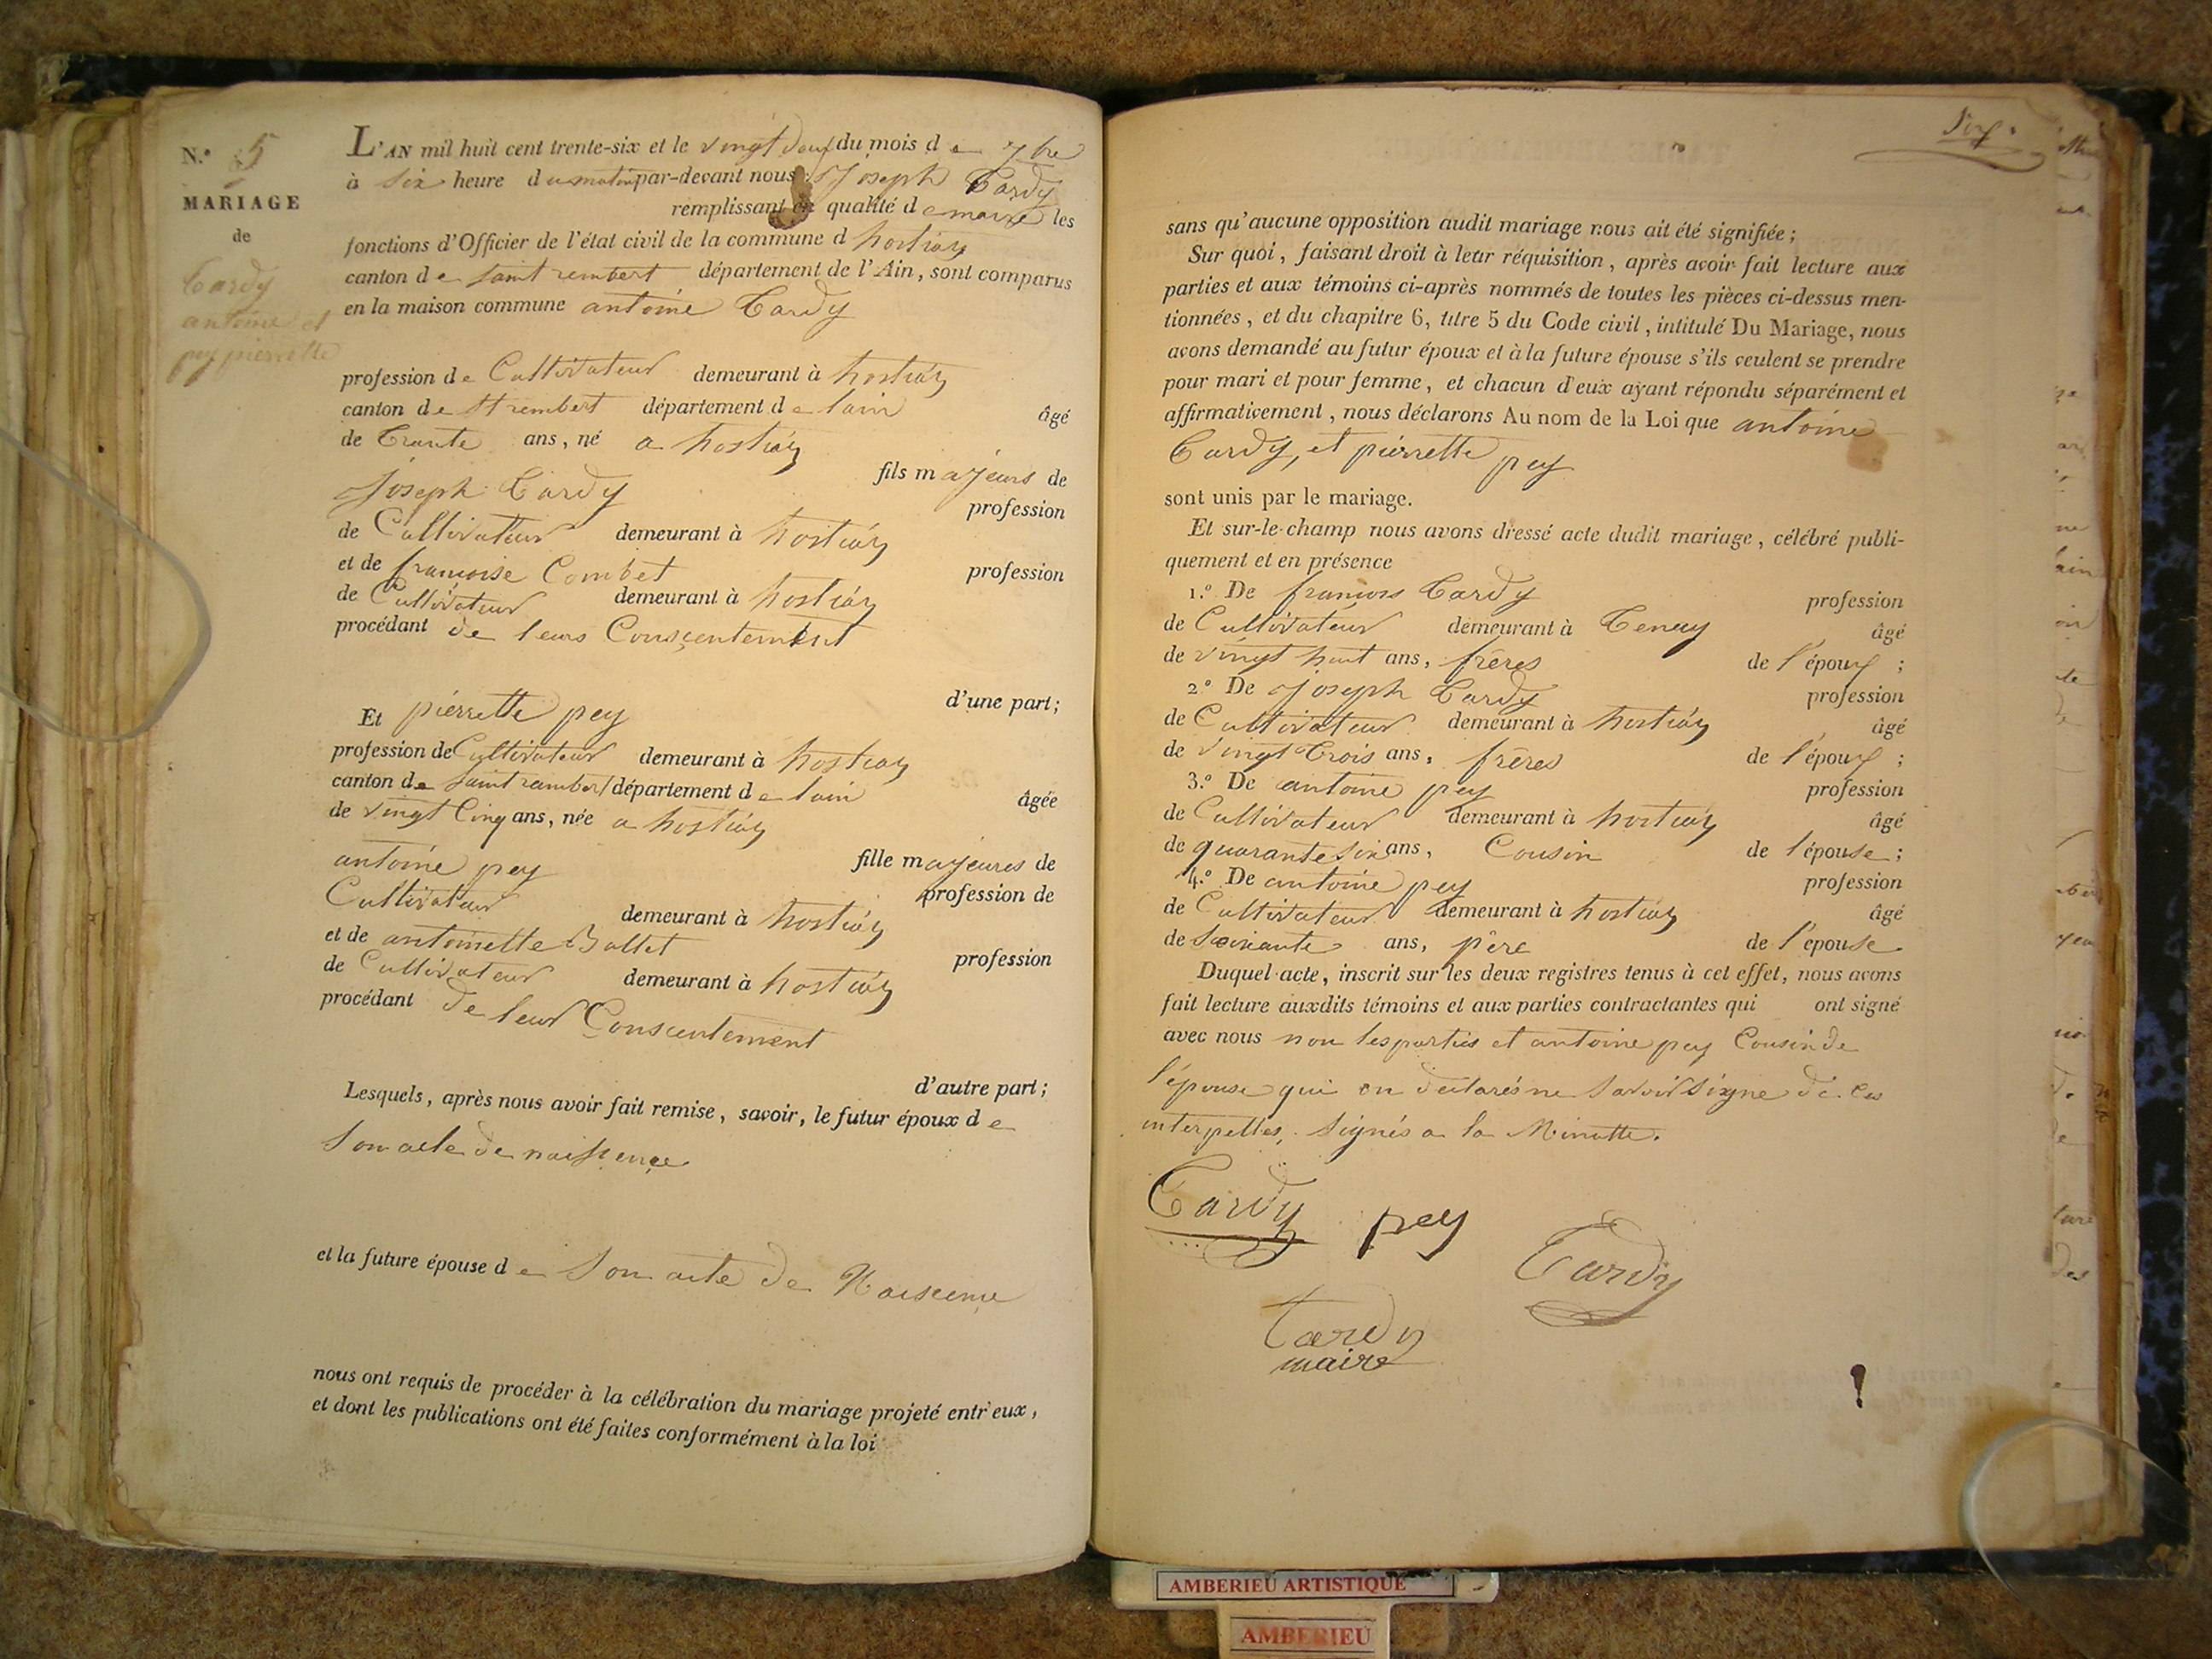 N.° 5
MARIAGE
de
Tardy
antoine et
pey pierrette
L'AN mil huit cent trente-six et le vingt deux du mois de 7bre
à six heure du matin par-devant nous Joseph Tardy
remplissant en qualité de maire les
fonctions d'Officier de l'état civil de la commune d hostiaz
canton de saint rembert département de l'Ain, sont comparus
en la maison commune antoine Tardy
profession de Cultivateur demeurant à hostiaz
canton de st rembert département de lain âgé
de trante ans, né a hostiaz
fils majeurs de
joseph Tardy profession
de Cultivateur demeurant à hostiaz
et de francoise Combet profession
de Cultivateur demeurant à hostiaz
procédant de leurs Conscentement
d'une part;
Et pierrette pey
profession de Cultivateur demeurant à hostiaz
canton de saint rambert département de lain âgée
de vingt Cinq ans, née a hostiaz
fille majeures de
antoine pey profession de
Cultivateur demeurant à hostiaz
et de antoinette Ballet profession
de Cultivateur demeurant à hostiaz
procédant de leur Conscentement
d'autre part;
Lesquels, après nous avoir fait remise, savoir, le futur époux de
son acte de naissence
et la future épouse de son acte de Naiscence
nous ont requis de procéder à la célébration du mariage projeté entr'eux,
et dont les publications ont été faites conformément à la loi
sans qu'aucune opposition audit mariage nous ait été signifiée;
Sur quoi, faisant droit à leur réquisition, après avoir fait lecture aux
parties et aux témoins ci-après nommés de toutes les pièces ci-dessus men-
tionnées, et du chapitre 6, titre 5 du Code civil, intitulé Du Mariage, nous
avons demandé au futur époux et à la future épouse s'ils veulent se prendre
pour mari et pour femme, et chacun d'eux ayant répondu séparément et
affirmativement, nous déclarons Au nom de la Loi que antoine
Tardy, et pierrette pey
sont unis par le mariage.
Et sur-le-champ nous avons dressé acte dudit mariage, célébré publi-
quement et en présence
1.° De francois Tardy profession
de Cultivateur demeurant à Tenay âgé
de vingt huit ans, frères de l'époux;
2.° De joseph Tardy profession
de Cultivateur demeurant à hostiaz âgé
de vingt Trois ans, frères de l'époux;
3.° De antoine pey profession
de Cultivateur demeurant à hostiaz âgé
de quarante six ans, Cousin de l'épouse;
4.° De antoine pey profession
de Cultivateur demeurant à hostiaz âgé
de soixante ans, père de l'epouse
Duquel acte, inscrit sur les deux registres tenus à cet effet, nous avons
fait lecture auxdits témoins et aux parties contractantes qui ont signé
avec nous non les parties et antoine pey Cousin de
l'épouse qui on declarés ne savoir signe de ces
interpelles, signés a la Minutte.
Tardy pey
Tardy
Tardy
maire
AMBERIEU ARTISTIQUE
AMBERIEU